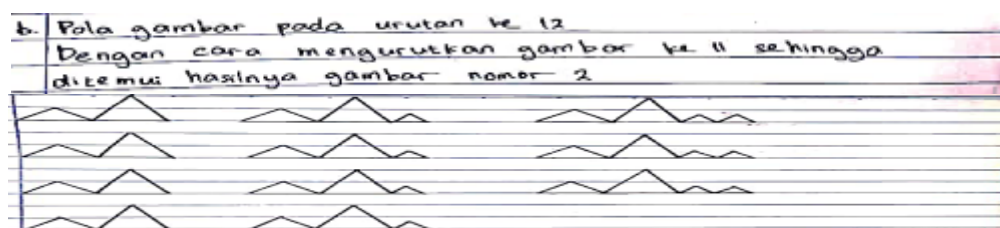 b. Pola gambar pada urutan ke 12
Dengan cara mengurutkan gambar ke 11 sehingga
ditemui hasilnya gambar nomor 2